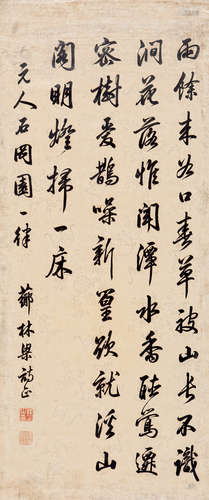 雨餘来谷口春草被山長不識
澗花落惟聞潭水香酣鶯遷
密樹鵲噪新篁欲就溪山
閣明燈掃一床
元人石岡園一律 薌林梁詩正